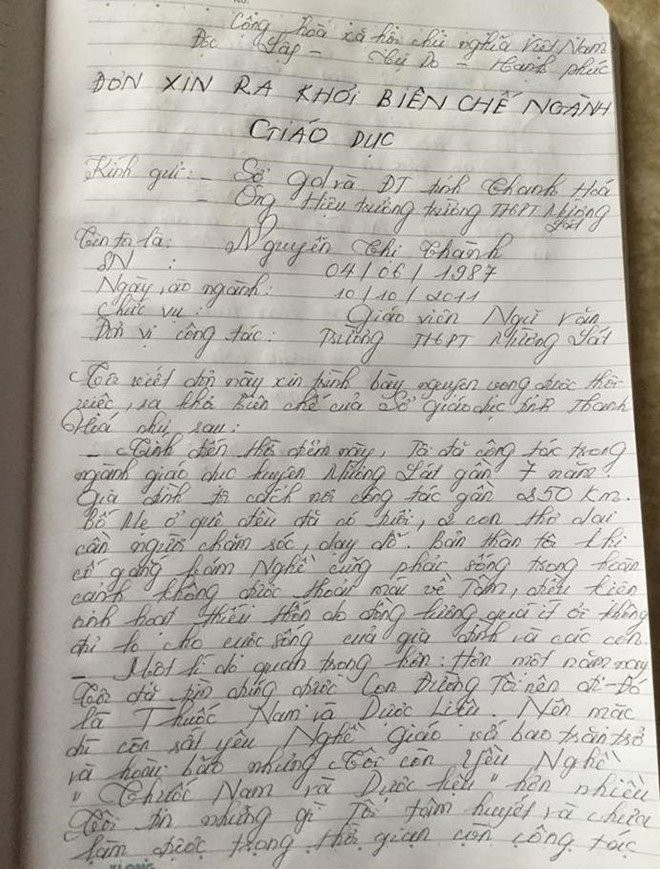 Cộng hòa xã hội chủ nghĩa Việt Nam
Độc Lập - Tự Do - Hạnh phúc
ĐƠN XIN RA KHỎI BIÊN CHẾ NGÀNH
GIÁO DỤC
Kính gửi: - Sở gd và ĐT tỉnh Thanh Hoá
- Ông Hiệu trưởng trường THPT Mường Lát
Tên tôi là: Nguyễn Thị Thành
SN : 04/06/1987
Ngày vào ngành: 10/10/2011
Chức vụ: Giáo viên Ngữ văn
Đơn vị công tác: Trường THPT Mường Lát
Tôi viết đơn này xin trình bày nguyện vọng được thôi
việc, ra khỏi Biên chế của Sở giáo dục tỉnh Thanh
Hoá như sau:
- Tính đến thời điểm này, Tôi đã công tác trong
ngành giáo dục huyện Mường Lát gần 7 năm.
Gia đình tôi cách nơi công tác gần 250 Km.
Bố Mẹ ở quê đều đã có tuổi, 2 con thơ dại
cần người chăm sóc, dạy dỗ. Bản thân tôi thì
cố gắng bám Nghề cũng phải sống trong hoàn
cảnh không được thoải mái về Tâm, điều kiện
sinh hoạt thiếu thốn do đồng lương quá ít ỏi không
đủ lo cho cuộc sống của gia đình và các con.
- Một lí do quan trọng hơn: Hơn một năm nay
Tôi đã tìm được Con Đường Tôi nên đi - Đó
là Thuốc Nam và Dược Liệu. Nên mặc
dù còn rất yêu Nghề giáo với bao trăn trở
và hoài bão nhưng Tôi còn Yêu Nghề
" Thuốc Nam và Dược liệu " hơn nhiều
Tôi tin những gì Tôi tâm huyết và chưa
làm được trong thời gian còn công tác